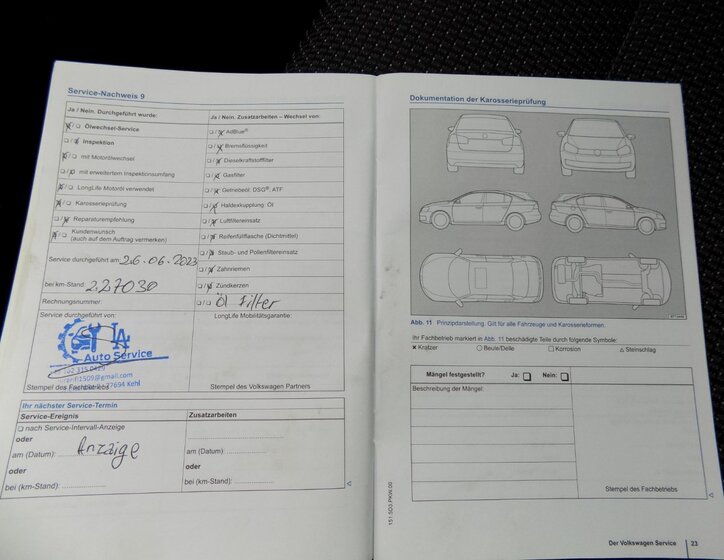 Service-Nachweis 9
Ja / Nein. Durchgeführt wurde:
Ölwechsel-Service
Inspektion
mit Motorölwechsel
mit erweitertem Inspektionsumfang
LongLife Motoröl verwendet
Karosserieprüfung
Reparaturempfehlung
Kundenwunsch
(auch auf dem Auftrag vermerken)
Service durchgeführt am 26.06.2023
bei km-Stand 227030
Rechnungsnummer:
Service durchgeführt von:
Auto Service
77694 Kehl
Stempel des Fachbetriebs
Ja / Nein. Zusatzarbeiten – Wechsel von:
AdBlue®
Bremsflüssigkeit
Dieselkraftstofffilter
Gasfilter
Getriebeöl: DSG®, ATF
Haldexkupplung: Öl
Luftfiltereinsatz
Reifenfüllflasche (Dichtmittel)
Staub- und Pollenfiltereinsatz
Zahnriemen
Zündkerzen
Öl Filter
LongLife Mobilitätsgarantie:
Stempel des Volkswagen Partners
Ihr nächster Service-Termin
Service-Ereignis
nach Service-Intervall-Anzeige
oder
am (Datum): Anzaige
oder
bei (km-Stand):
Zusatzarbeiten
am (Datum):
oder
bei (km-Stand):
Dokumentation der Karosserieprüfung
Abb. 11 Prinzipdarstellung. Gilt für alle Fahrzeuge und Karosserieformen.
Ihr Fachbetrieb markiert in Abb. 11 beschädigte Teile durch folgende Symbole:
× Kratzer ○ Beule/Delle □ Korrosion △ Steinschlag
Mängel festgestellt? Ja: Nein:
Beschreibung der Mängel:
Stempel des Fachbetriebs
151.5D3.PKW.00
Der Volkswagen Service 23